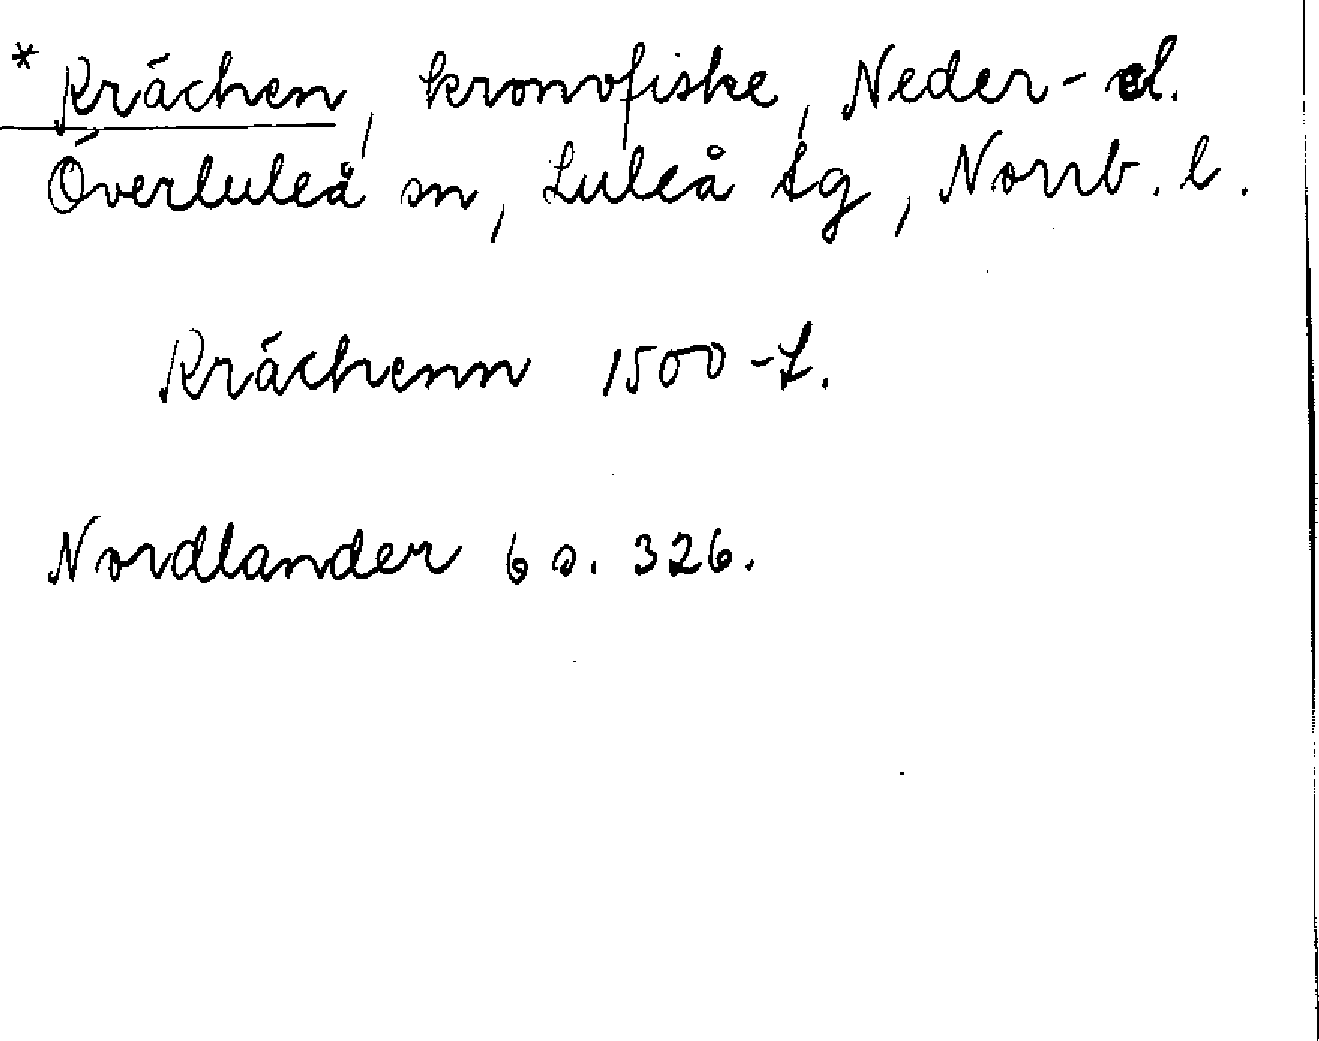 *Krächen, kronofiske, Neder- el.
Överluleå sn, Luleå tg, Norrb. l.
Krächenn 1500-t.
Nordlander 6 s. 326.